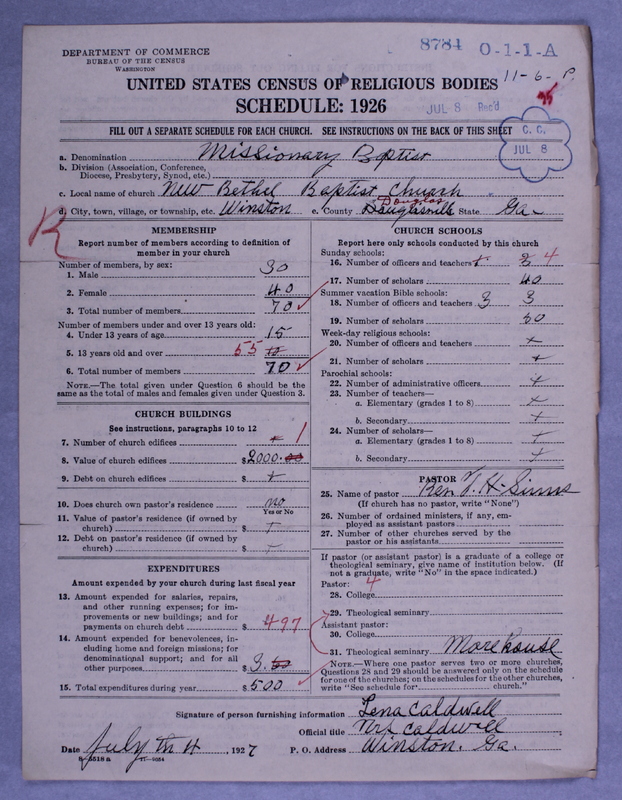 DEPARTMENT OF COMMERCE
BUREAU OF THE CENSUS
WASHINGTON
8784 0-1-1-A
11-6- P.
UNITED STATES CENSUS OF RELIGIOUS BODIES
SCHEDULE: 1926
JUL 8 Rec'd
FILL OUT A SEPARATE SCHEDULE FOR EACH CHURCH. SEE INSTRUCTIONS ON THE BACK OF THIS SHEET
C. C.
JUL 8
a. Denomination Missionary Baptist
b. Division (Association, Conference,
Diocese, Presbytery, Synod, etc.)
c. Local name of church New Bethel Baptist Church
d. City, town, village, or township, etc. Winston e. County Douglasville Douglas State Ga.
R
MEMBERSHIP
Report number of members according to definition of
member in your church
Number of members, by sex:
1. Male 30
2. Female 40
3. Total number of members 70
Number of members under and over 13 years old:
4. Under 13 years of age 15
5. 13 years old and over 55
6. Total number of members 70
NOTE.—The total given under Question 6 should be the
same as the total of males and females given under Question 3.
CHURCH BUILDINGS
See instructions, paragraphs 10 to 12
7. Number of church edifices 1
8. Value of church edifices $2000.00
9. Debt on church edifices $ +
10. Does church own pastor's residence? no
Yes or No
11. Value of pastor's residence (if owned by
church) $ +
12. Debt on pastor's residence (if owned by
church) $ +
EXPENDITURES
Amount expended by your church during last fiscal year
13. Amount expended for salaries, repairs,
and other running expenses; for im-
provements or new buildings; and for
payments on church debt $ 497
14. Amount expended for benevolences, in-
cluding home and foreign missions; for
denominational support; and for all
other purposes $ 3.
15. Total expenditures during year $ 500
CHURCH SCHOOLS
Report here only schools conducted by this church
Sunday schools:
16. Number of officers and teachers 4
17. Number of scholars 40
Summer vacation Bible schools:
18. Number of officers and teachers 3 3
19. Number of scholars 30
Week-day religious schools:
20. Number of officers and teachers +
21. Number of scholars +
Parochial schools:
22. Number of administrative officers +
23. Number of teachers—
a. Elementary (grades 1 to 8) +
b. Secondary +
24. Number of scholars—
a. Elementary (grades 1 to 8) +
b. Secondary +
PASTOR
25. Name of pastor Rev. J. H. Sims
(If church has no pastor, write "None")
26. Number of ordained ministers, if any, em-
ployed as assistant pastors
27. Number of other churches served by the
pastor or his assistants
If pastor (or assistant pastor) is a graduate of a college or
theological seminary, give name of institution below. (If
not a graduate, write "No" in the space indicated.)
Pastor: 4
28. College
29. Theological seminary
Assistant pastor:
30. College
31. Theological seminary Morehouse
NOTE.—Where one pastor serves two or more churches,
Questions 28 and 29 should be answered only on the schedule
for one of the churches; on the schedules for the other churches,
write "See schedule for church."
Signature of person furnishing information Lena Caldwell
Official title Mrs Caldwell
Date July th 4, 1927 P. O. Address Winston. Ga.
8-5518a 11-9054